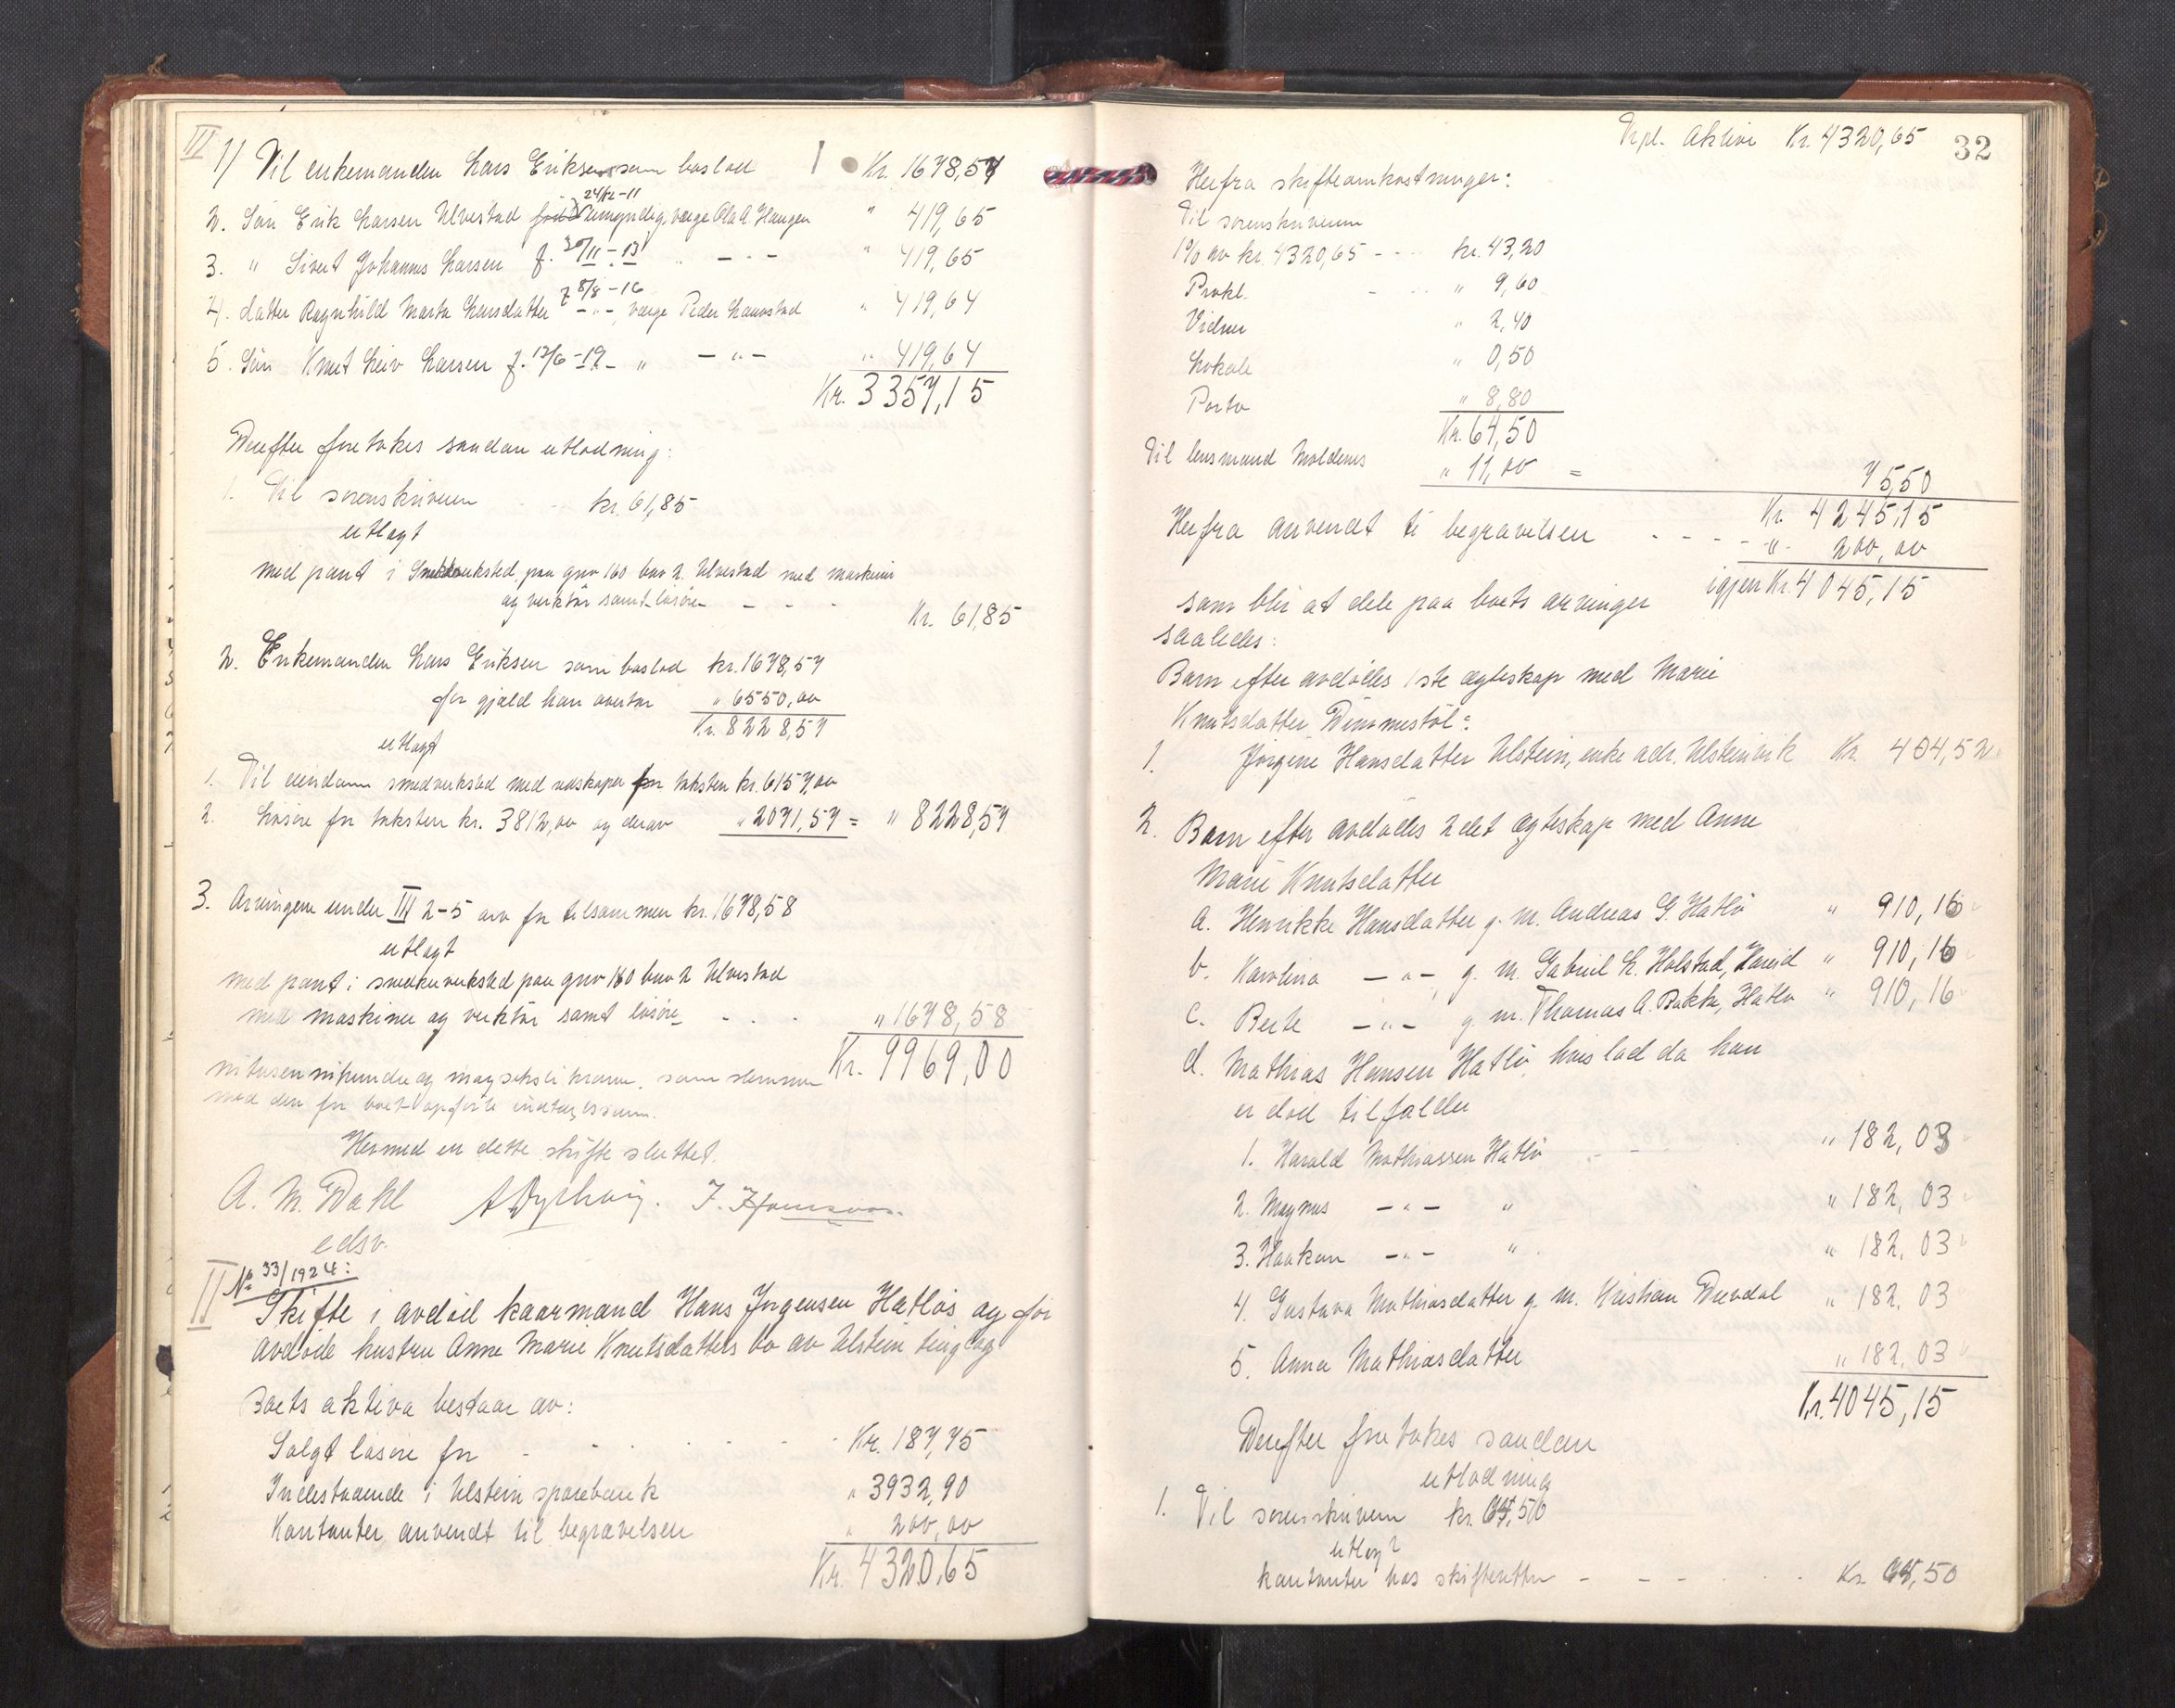 III
1) Til enkemanden Lars Eriksen som boslod Kr. 1678,57
24/12-11
2. Søn Erik Larsen Ulvestad født umyndig, verge Ola A. Haugen " 419,65
3. " Sivert Johannes Larsen f. 30/11-13 " - " - " 419,65
f 8/8-16
4. datter Ragnhild Marta Larsdatter - " -, verge Peder Laurstad " 419,64
5. Søn Knut Leiv Larsen f. 12/6-19 - " - " - " 419,64
Kr. 3357,15
Derefter foretokes saadan utlodning:
1. Til sorenskriveren kr. 61,85
utlagt
med pant i Smedverksted paa gno 160 bno 2 Ulvestad med maskiner
og verktøi samt løsøre - - - Kr. 61,85
2. Enkemanden Lars Eriksen som boslod kr. 1678,57
for gjæld han overtar " 6550,00
Kr. 8228,57
utlagt
1. Til eiendom smedverksted med redskaper for taksten kr. 6157,00
2. Løsøre for taksten kr. 3812,00 og derav " 2071,57 = " 8228,57
3. Arvingene under III 2-5 arv for tilsammen kr. 1678,58
utlagt
med pant i smedverksted paa gno 160 bno 2 Ulvestad
med maskiner og verktøi samt løsøre - - - " 1678,58
Kr. 9969,00
nitusennihundreogseksti kroner, som stemmer
med den for boet opførte indtægtssum.
Hermed er dette skifte sluttet.
A. M. Dahl
edsv.
II No 33/1924:
Skifte i avdød kaarmand Hans Jørgensen Hatløs og før
avdøde hustru Anne Marie Knutsdatters bo av Ulstein tinglag
Boets aktiva bestaar av:
Solgt løsøre for - - - - - Kr. 187,75
Indestaaende i Ulstein sparebank " 3932,90
Kontanter anvendt til begravelsen " 200,00
Kr. 4320,65
Trpt. Aktiva Kr. 4320,65
32
Herfra skifteomkostninger:
Til sorenskriveren
1% av kr. 4320,65 - - - kr. 43,20
Prokl. - - - " 9,60
Vidner " 2,40
Lokale " 0,50
Porto " 8,80
Kr. 64,50
Til lensmand Moldenes " 11,00 = 75,50
Kr. 4245,15
Herfra anvendt til begravelsen - - - - " 200,00
igjen Kr. 4045,15
som blir at dele paa boets arvinger
saaledes:
Barn efter avdødes 1ste egteskap med Marie
Knutsdatter Dimmestøl:
1. Jørgine Hansdatter Ulstein, enke adr. Ulsteinvik Kr. 404,52
2. Barn efter avdødes 2det egteskap med Anne
Marie Knutsdatter
a. Henrikke Hansdatter g. m. Andreas G. Hatlø " 910,16
b. Karolina - " - g. m. Gabriel L. Holstad, Hareid " 910,16
c. Berte - " - g. m. Thomas A. Bakke, Hatlø " 910,16
d. Mathias Hansen Hatlø, hvis lod da han
er død tilfalder
1. Harald Mathiassen Hatlø - - - " 182,03
2. Magnus - " - " " 182,03
3. Haakon - " - " " 182,03
4. Gustava Mathiasdatter g. m. Kristian Duvdal " 182,03
5. Anna Mathiasdatter " 182,03
Kr. 4045,15
Derefter foretokes saadan
utlodning
1. Til sorenskriveren kr. 64,50
utlagt
kontanter hos skifteretten - - - - - Kr. 64,50